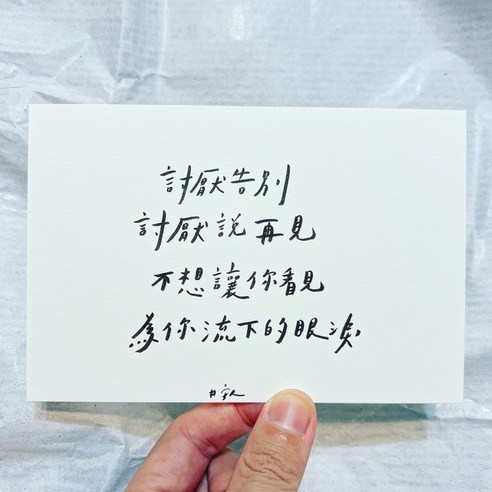 討厭告別
討厭說再見
不想讓你看見
為你流下的眼淚